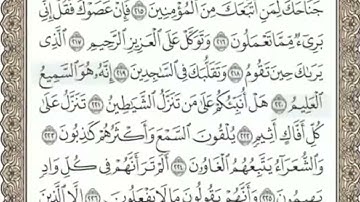 جَنَاحَكَ لِمَنِ ٱتَّبَعَكَ مِنَ ٱلْمُؤْمِنِينَ ٢١٥ فَإِنْ عَصَوْكَ فَقُلْ إِنِّى
بَرِىٓءٌ مِّمَّا تَعْمَلُونَ ٢١٦ وَتَوَكَّلْ عَلَى ٱلْعَزِيزِ ٱلرَّحِيمِ ٢١٧ ٱلَّذِى
يَرَىٰكَ حِينَ تَقُومُ ٢١٨ وَتَقَلُّبَكَ فِى ٱلسَّٰجِدِينَ ٢١٩ إِنَّهُۥ هُوَ ٱلسَّمِيعُ
ٱلْعَلِيمُ ٢٢٠ هَلْ أُنَبِّئُكُمْ عَلَىٰ مَن تَنَزَّلُ ٱلشَّيَٰطِينُ ٢٢١ تَنَزَّلُ عَلَىٰ
كُلِّ أَفَّاكٍ أَثِيمٍ ٢٢٢ يُلْقُونَ ٱلسَّمْعَ وَأَكْثَرُهُمْ كَٰذِبُونَ ٢٢٣
وَٱلشُّعَرَآءُ يَتَّبِعُهُمُ ٱلْغَاوُۥنَ ٢٢٤ أَلَمْ تَرَ أَنَّهُمْ فِى كُلِّ وَادٍ
يَهِيمُونَ ٢٢٥ وَأَنَّهُمْ يَقُولُونَ مَا لَا يَفْعَلُونَ ٢٢٦ إِلَّا ٱلَّذِينَ